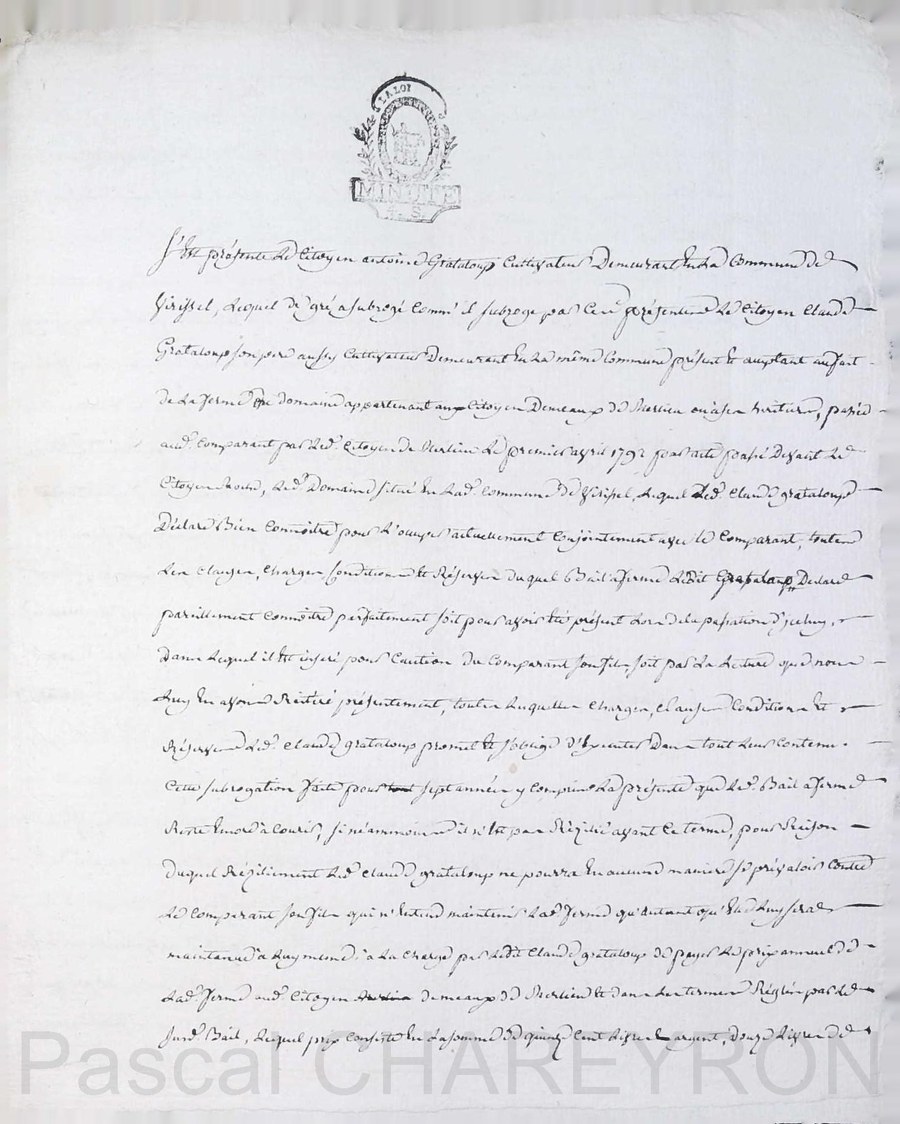 LA LOI
MINUTE
4. S.
S'est présenté Le Citoyen antoine Grataloup Cultivateur Demeurant En La Commune de
Virissel, Lequel de gré a subrogé comme il subroge par Ces présentes Le Citoyen Claude
Grataloup son pere aussy Cultivateur Demeurant En La même Commune présent Et acceptant au fait
de La ferme Du domaine appartenant au Citoyen Demeaux de Merlieu passée
aud. Comparant par Led. Citoyen de Merlieu Le premier avril 1792 par acte passé Devant Le
Citoyen Led. Domaine situé En Lad. Commune de Virissel, Lequel Led. Claude grataloup
Déclare Bien Connoitre pour L'occuper actuellement Conjointement avec Le Comparant, toutes
Les Clauses, Charges, Conditions Et Réserves duquel Bail a ferme Ledit Grataloup Declare
pareillement Connoitre parfaitement soit pour avoir Eté présent Lors de La passation d'jceluy,
Dans Lequel il Est inséré pour Caution du Comparant son fils, soit par La Lecture que nous
Luy En avons Réitéré présentement, toutes Lesquelles Charges, Clauses Conditions Et
Réserves Led. Claude grataloup promet Et s'oblige D'Executer Dans tout Leur Contenu.
Cette subrogation faite pour tout sept années y Compris La présente que Led. Bail a ferme
Reste Encore à Courir, si néanmoins il n'Est pas Résilié avant Ce terme, pour Raison
Duquel Résiliement Led. Claude grataloup ne pourra En aucune maniere se prévaloir Contre
Le Comparant son fils qui n'Entend maintenir Lad. ferme qu'autant qu'Elle Luy sera
maintenue à Luy même, à La Charge par Ledit Claude grataloup de payer Le prix annuel de
Lad. ferme aud. Citoyen demeaux de Merlieu Et dans Les termes Réglés par Le
susd. Bail, Lequel prix Consiste En La somme de quinze Cent Livres argent, Douze Livres de
Pascal CHAREYRON